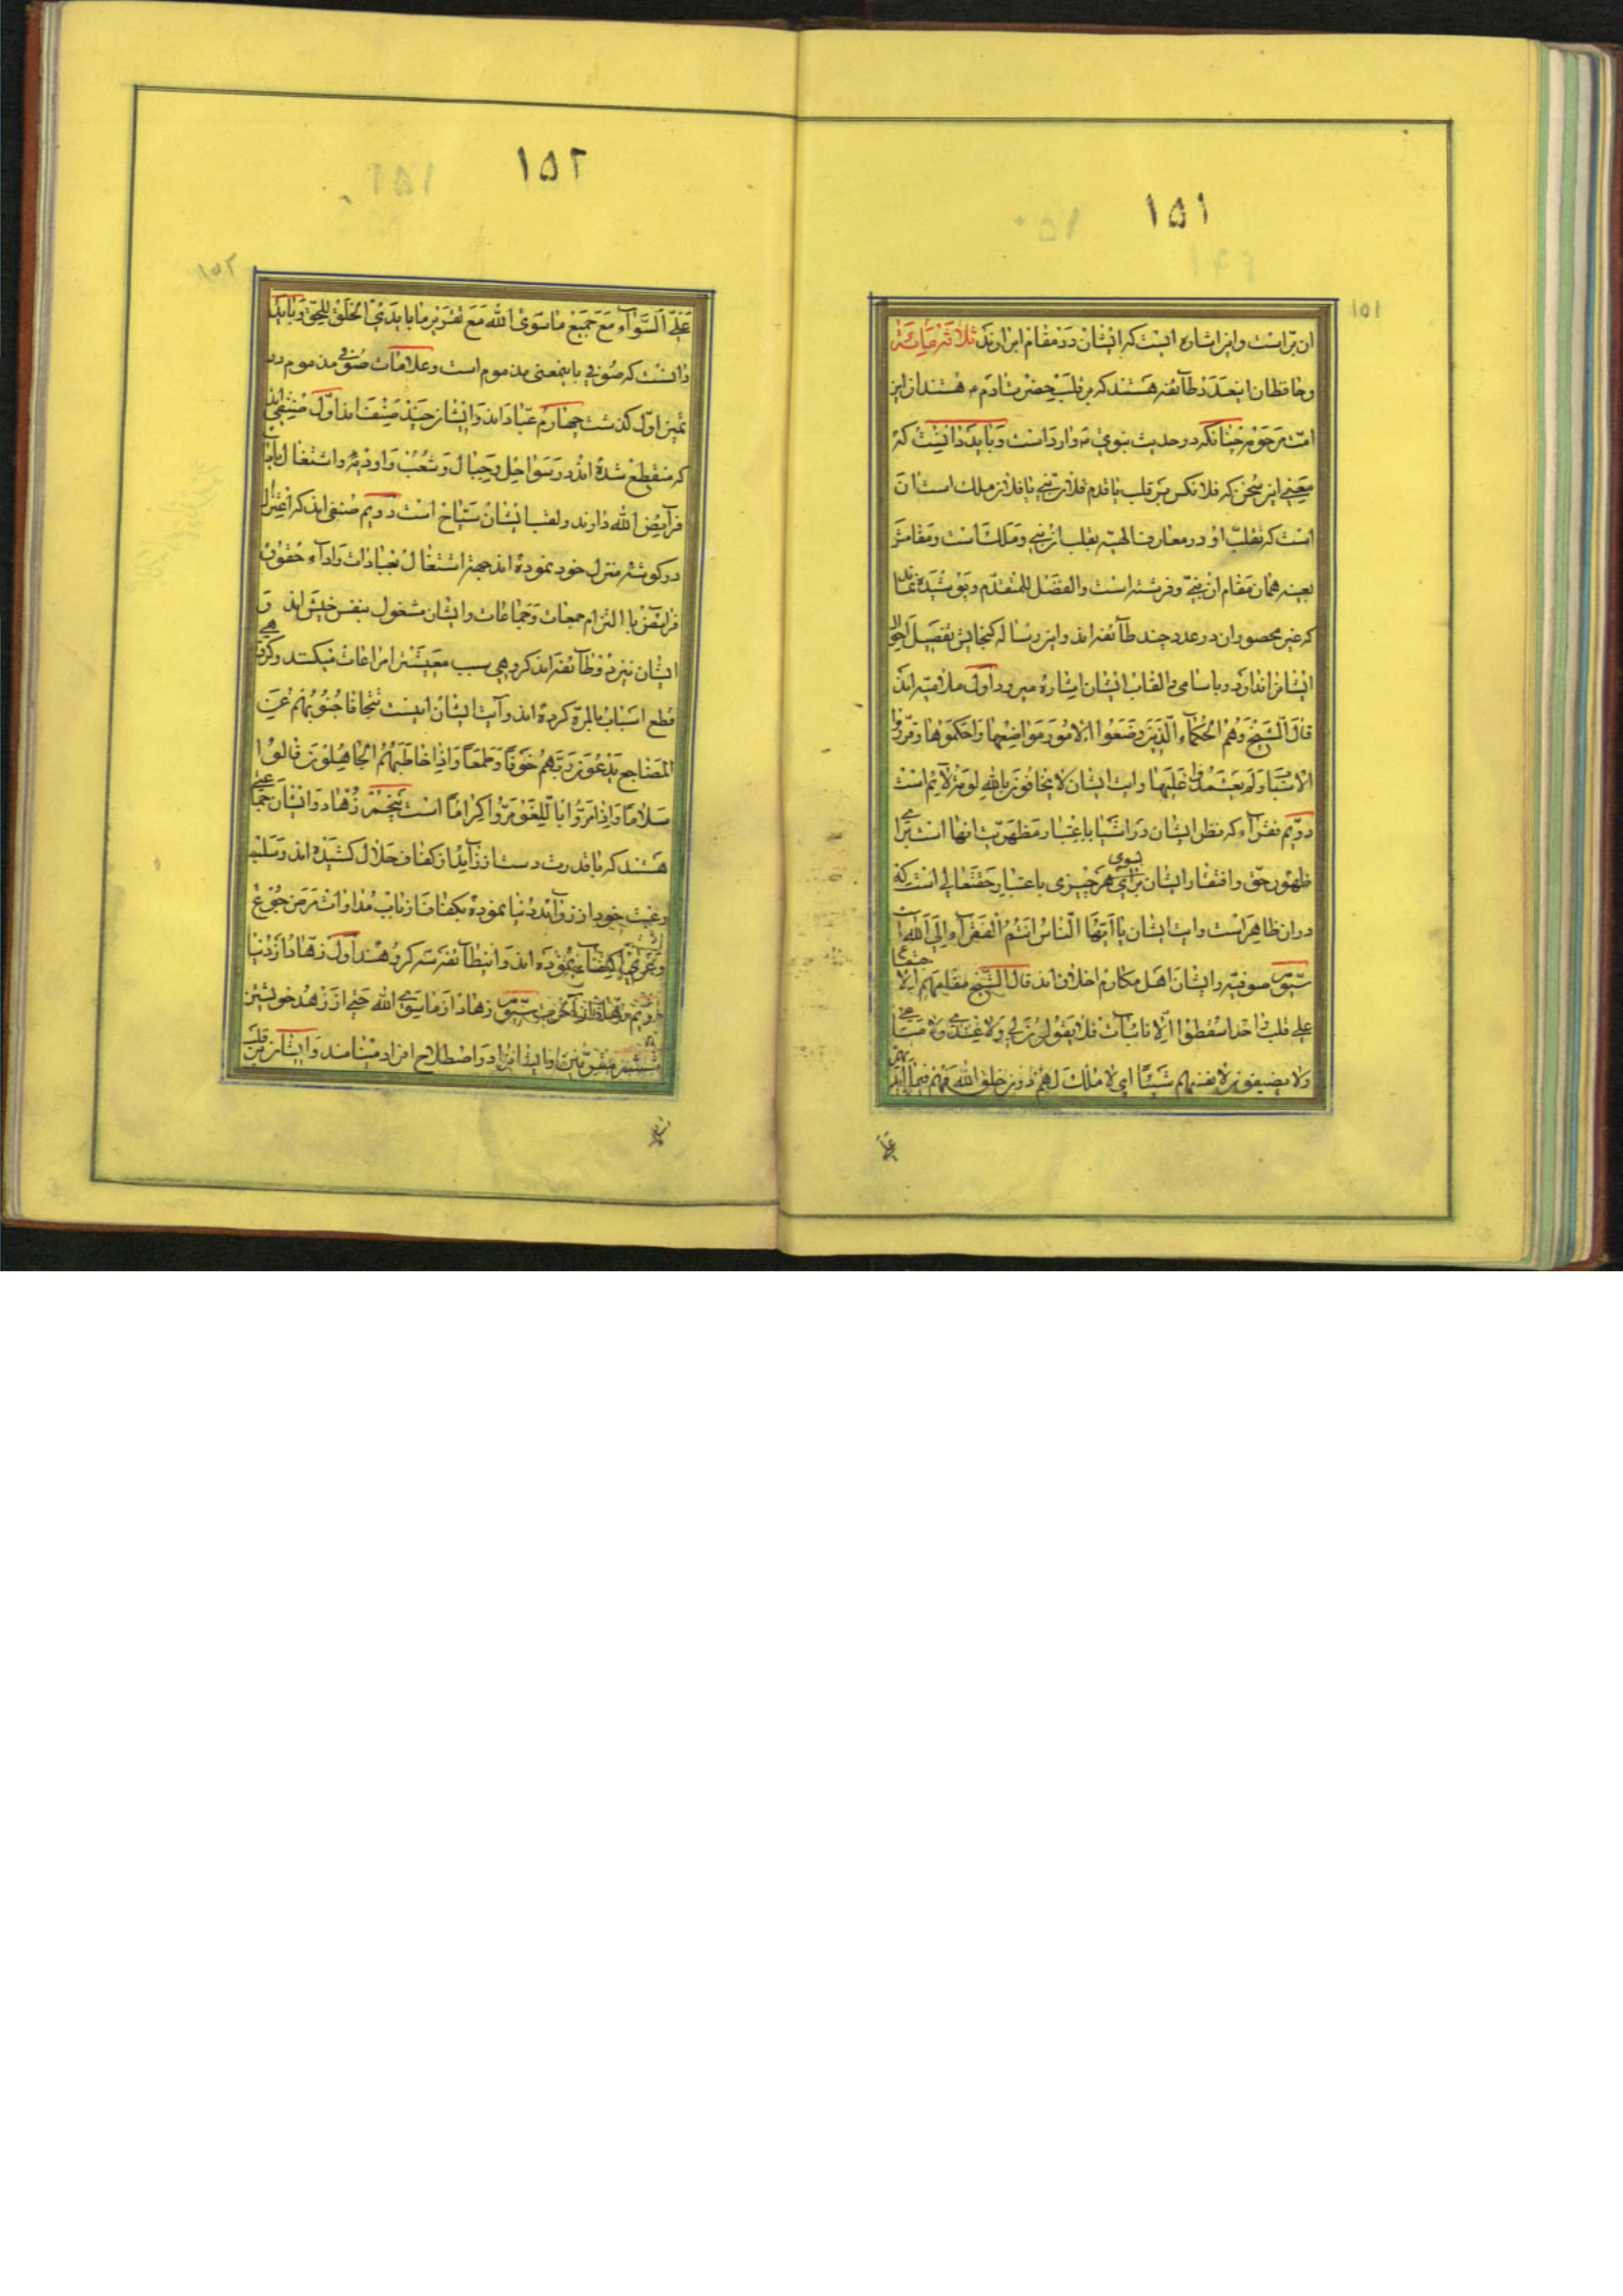 ۱۵۱
۱۵۱
ان براست و این اشاره است که ایشان در مقام ابرارند ثلاثرمائة
و حافظان این عدد طائفه هستند که بر قلب حضرت ادم ع هستند از این
امت مرحومه چنانکه در حدیث نبوی ص وارد است و باید دانست که
معنی این سخن که فلانکس بر قلب یا قدم فلان نبی یا فلان ملک است ان
است که تقلب او در معارف الهیه بقلب ان نبی و ملک است و مقامش
بعینه همان مقام ان نبی و فرشته است والفضل للمتقدم و پوشیده نماند
که غیر محصوران در عدد چند طائفه اند و این رساله گنجایش تفصیل احوال
ایشانرا ندارد و باسامی و القاب ایشان اشاره میرود اول ملامتیه اند
قال الشیخ وهم الحکماء الذین وضعوا الامور مواضعها واحکموها وقرروا
الاسباب ولم یعتمدوا علیها وایت ایشان لا یخافون بالله لومة لائم است
دویم فقراء که نظر ایشان در اشیا باعتبار مظهریت انها است برای
ظهور حق و افتقار ایشان بسوی هر چیزی باعتبار حقتعالی است که
در ان ظاهر است و ایت ایشان یا ایها الناس انتم الفقراء الی الله است
سیوم صوفیه و ایشان اهل مکارم اخلاق اند قال الشیخ مقامهم الا
علی قلب احد اسقطوا الانانیات فلا یقولون لی ولا عندی ولا متاعی
ولا یضیفون لانفسهم شیئا ای لا ملک لهم دون خلق الله فهم فیما
علی
۱۵۲
۱۵۲
علی السواء مع جمیع ما سوی الله مع تقریر ما باید الخلق للحق و باید
دانست که صوفی باینمعنی مذموم است و علامات صوفی مذموم در
اول گذشت چهارم عباد اند و ایشان چند صنف اند اول صنفی اند
که منقطع شده اند در سواحل و جبال و شعب و اودیه و اشتغال باتیان
فرایض الله دارند و لقب ایشان سیاح است دویم صنفی اند که اعتزال
در گوشه منزل خود نموده اند جهة اشتغال بعبادات و اداء حقوق
فرایض با التزام جمعات و جماعات و ایشان مشغول بنفس خویش اند و
ایشان نیز دو طائفه اند گروهی سبب معیشت را مراعات میکنند و گروهی
قطع اسباب بالمرة کرده اند و آیت ایشان اینست تتجافا جنوبهم عن
المضاجع یدعون ربهم خوفا و طمعا و اذا خاطبهم الجاهلون قالوا
سلاما و اذا مروا باللغو مروا کراما است پنجم زهاد و ایشان جماعتی
هستند که با قدرت دست از زاید از کفاف حلال کشیده اند و سلب
رغبت خود از زواید دنیا نموده بکفاف از باب مداوات مرض جوع
و عری اکتفا نموده اند و اینطائفه سه گروهند اول زهاد از دنیا
دویم زهاد از آخرت سیوم زهاد از ما سوی الله حتی از زهد خویشتن
ششم مقربین و ایشانرا در اصطلاح افراد مینامند و ایشان بر قلب